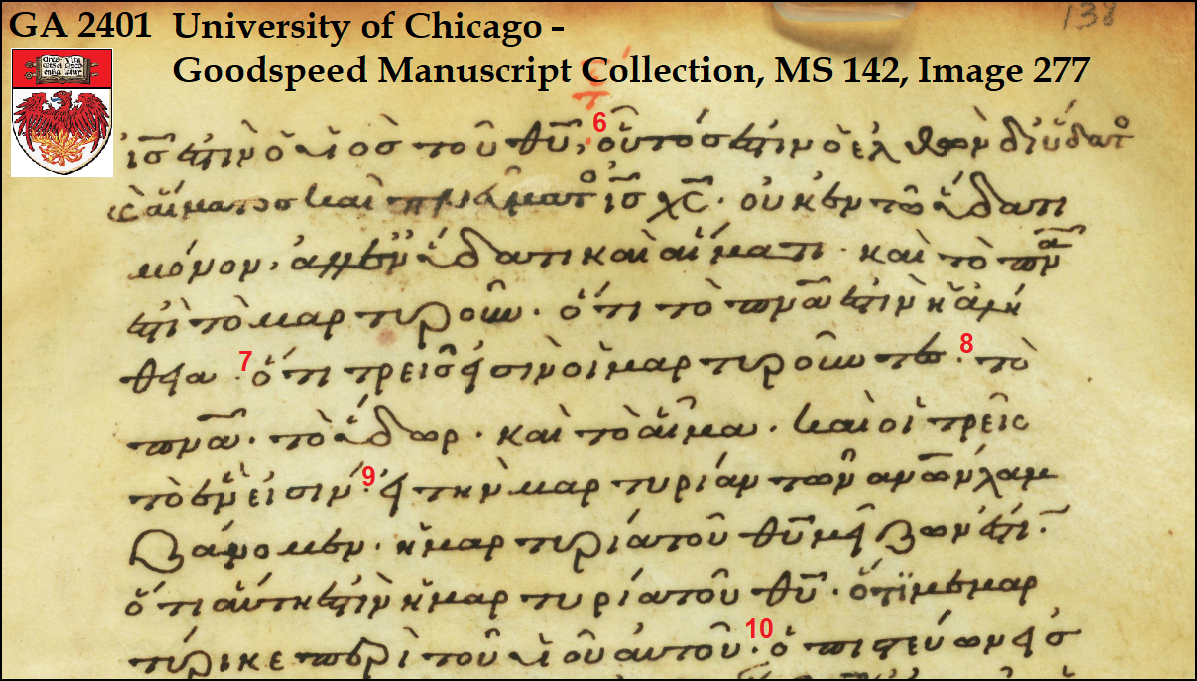 GA 2401 University of Chicago -
Goodspeed Manuscript Collection, MS 142, Image 277
138
ις̅ ἐστὶν ὁ υἱὸσ τοῦ θυ̅, 6 οὗτόσ ἐστιν ὁ ἐλθὼν δι ὕδατο
καὶ αἵματοσ καὶ πνεύματο ισ̅ χσ̅· οὐκ ἐν τῶ ὕδατι
μόνον, ἀλλ ἐν ὕδατι καὶ αἵματι· καὶ τὸ πνα̅
ἐστὶ τὸ μαρτυροῦν· ὅτι τὸ πνα̅ ἐστὶν ἡ ἀλή
θεια· 7 ὅτι τρεῖσ εἰσὶν οἱ μαρτυροῦντεσ· 8 τὸ
πνα̅· τὸ ὕδωρ· καὶ τὸ αἷμα· καὶ οἱ τρεῖς
τὸ ἕν εἰσιν· 9 εἰ τὴν μαρτυρίαν τῶν ανω̅ν λαμ
βάνομεν· ἡ μαρτυρία τοῦ θυ̅ μείζων ἐστί·
ὅτι αὕτη ἐστὶν ἡ μαρτυρία τοῦ θυ̅· ὅτϊ μεμαρ
τύρικε περὶ τοῦ υἱοῦ αὐτοῦ· 10 ὁ πιστεύων εἰσ